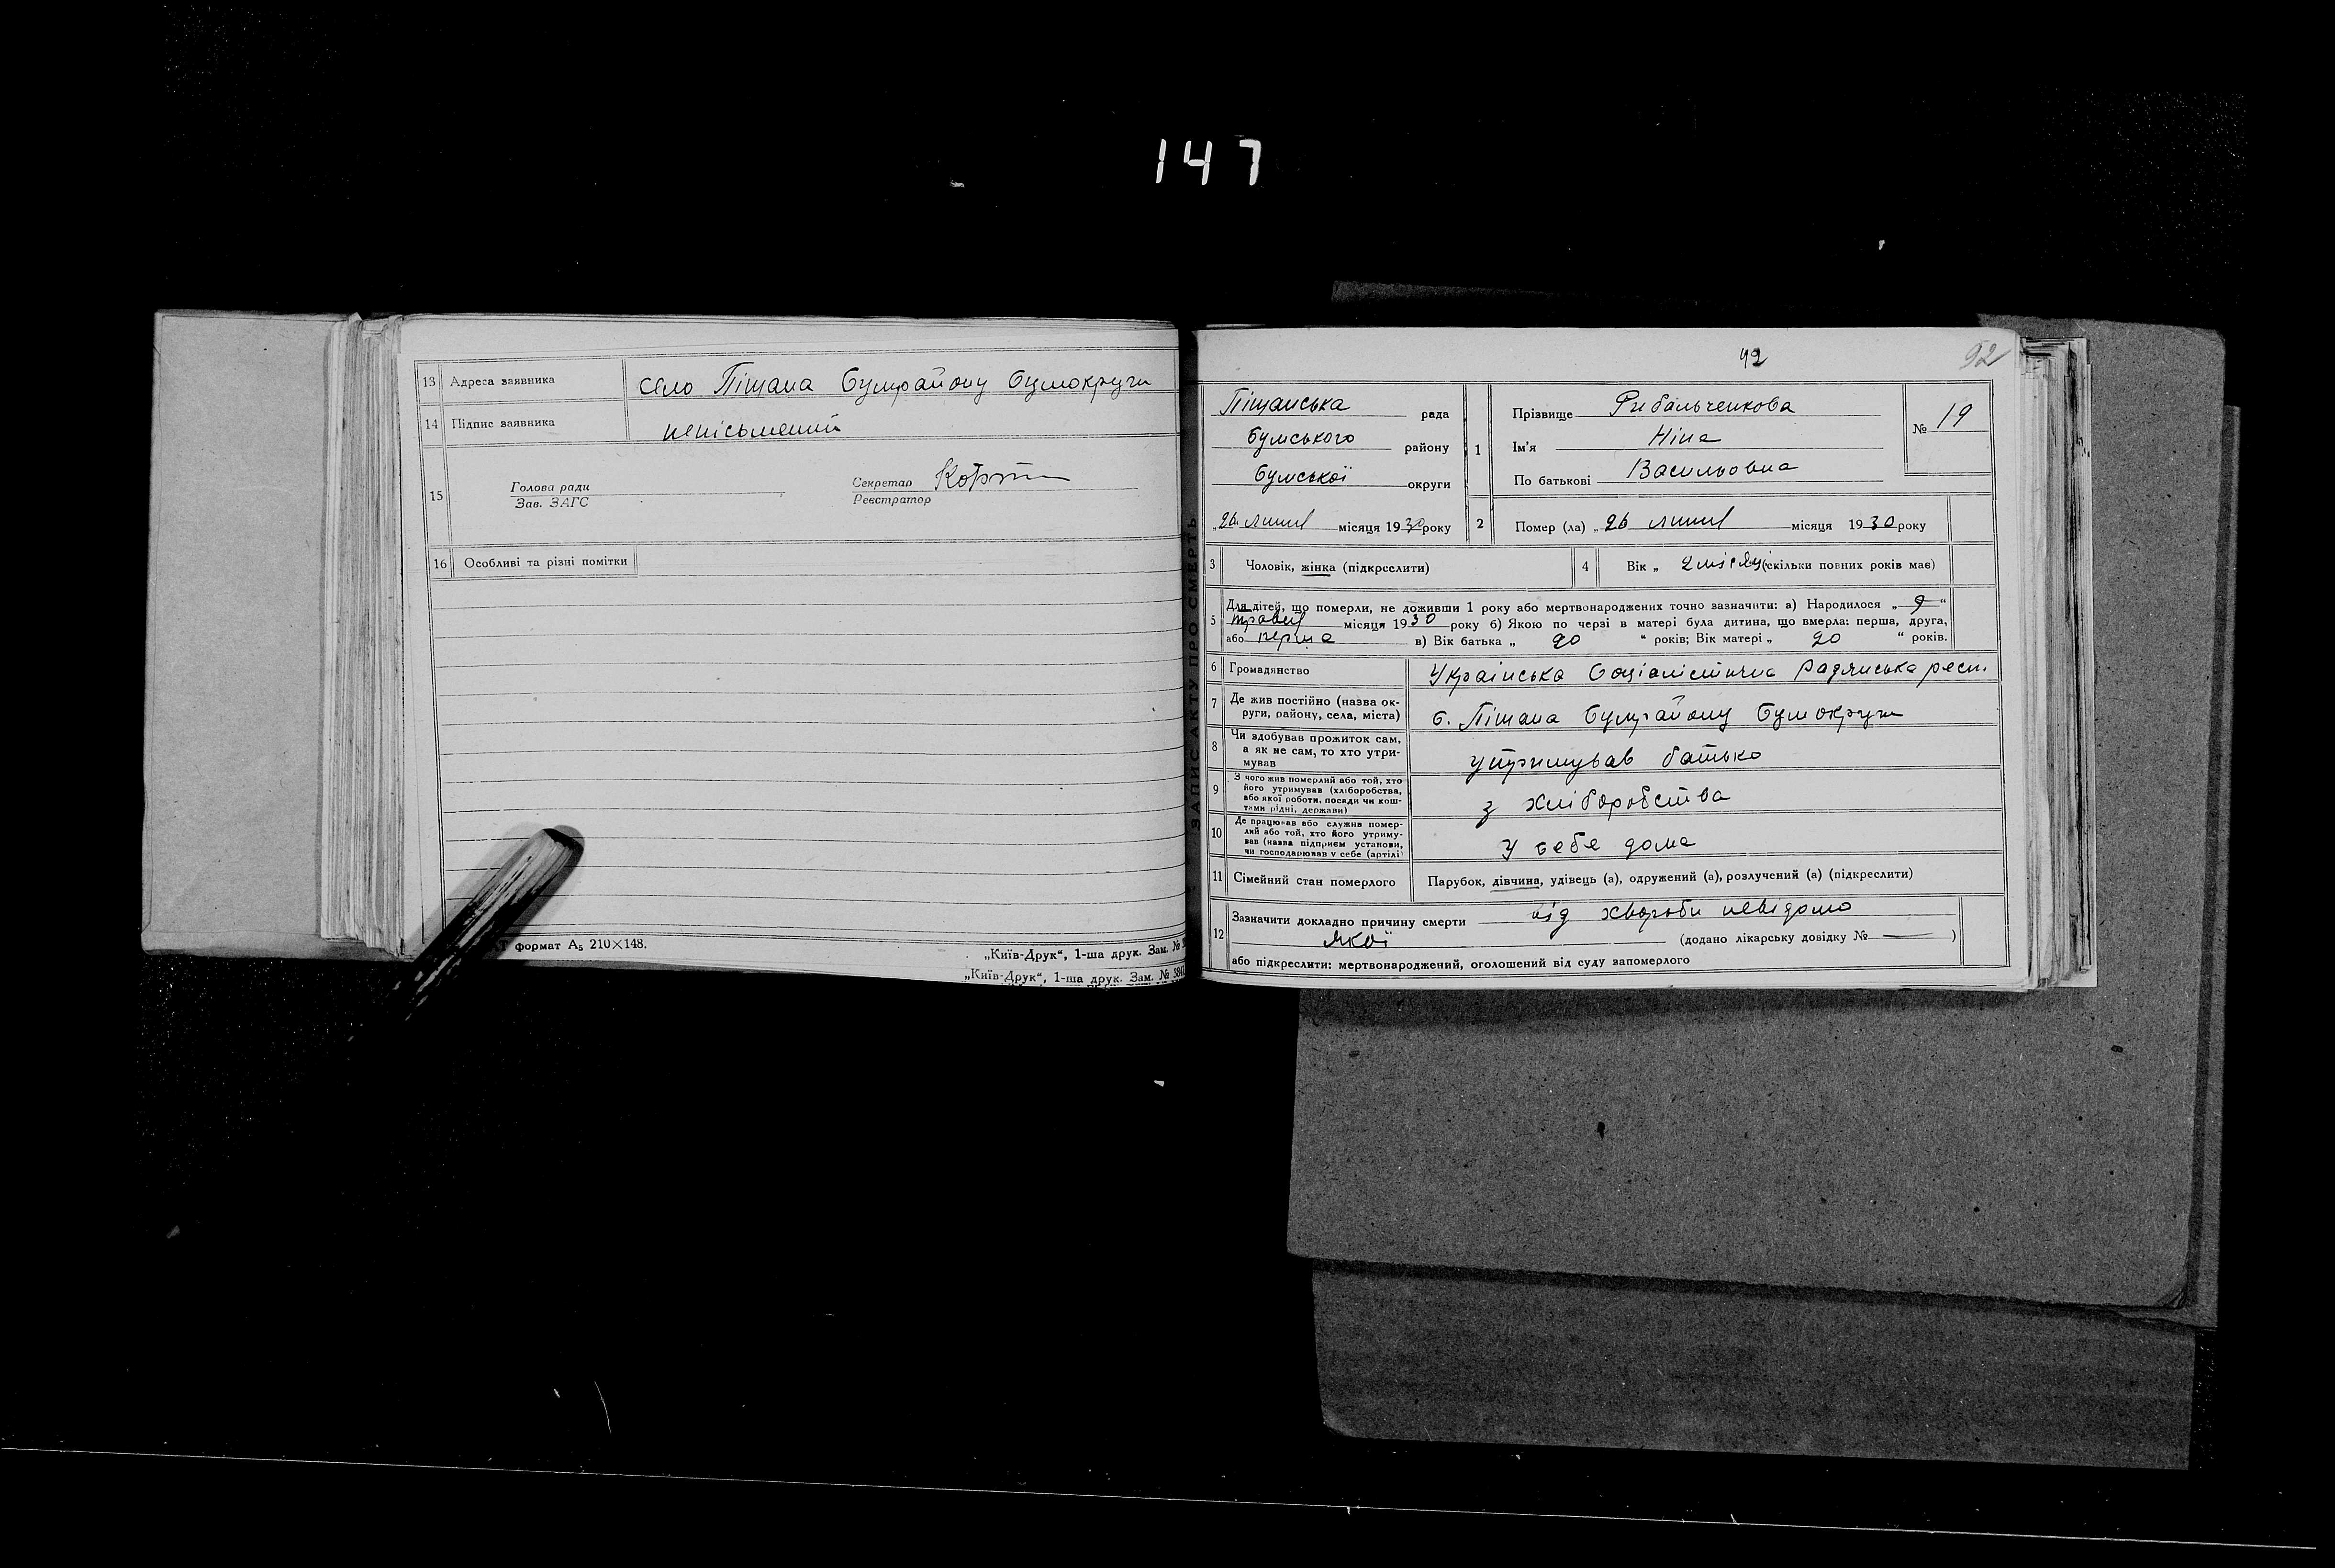 147
13 Адреса заявника село Піщана Сумрайону Сумокруги
14 Підпис заявника неписьмений
15 Голова ради
Зав. ЗАГС
Секретар
Реєстратор
16 Особливі та різні помітки
формат А₅ 210×148.
„Київ-Друк“, 1-ша друк. Зам. №
„Київ-Друк“, 1-ша друк. Зам. №
ЗАПИС АКТУ ПРО СМЕРТЬ
92
Піщанська рада
Сумського району
Сумської округи
„26 липня місяця 1930 року
1 Прізвище Рибальченкова
Ім'я Ніна
По батькові Васильовна
№ 19
2 Помер (ла) „26 липня місяця 1930 року
3 Чоловік, жінка (підкреслити)
4 Вік „ 2 місяці (скільки повних років має)
5 Для дітей, що померли, не доживши 1 року або мертвонароджених точно зазначити: а) Народилося „ 9 “
травня місяця 1930 року б) Якою по черзі в матері була дитина, що вмерла: перша, друга,
або перша в) Вік батька „ 20 “ років; Вік матері „ 20 “ років.
6 Громадянство Українська Соціалістична Радянська респ.
7 Де жив постійно (назва ок-
руги, району, села, міста) с. Піщана Сумрайону Сумокруги
8 Чи здобував прожиток сам,
а як не сам, то хто утри-
мував утримував батько
9 З чого жив померлий або той, хто
його утримував (хліборобства,
або якої роботи, посади чи кош-
тами рідні, держави) з хліборобства
10 Де працював або служив помер-
лий або той, хто його утриму-
вав (назва підприєм установи,
чи господарював у себе (артілі) у себе дома
11 Сімейний стан померлого Парубок, дівчина, удівець (а), одружений (а), розлучений (а) (підкреслити)
12 Зазначити докладно причину смерти від хвороби невідомо
якої (додано лікарську довідку № — )
або підкреслити: мертвонароджений, оголошений від суду запомерлого